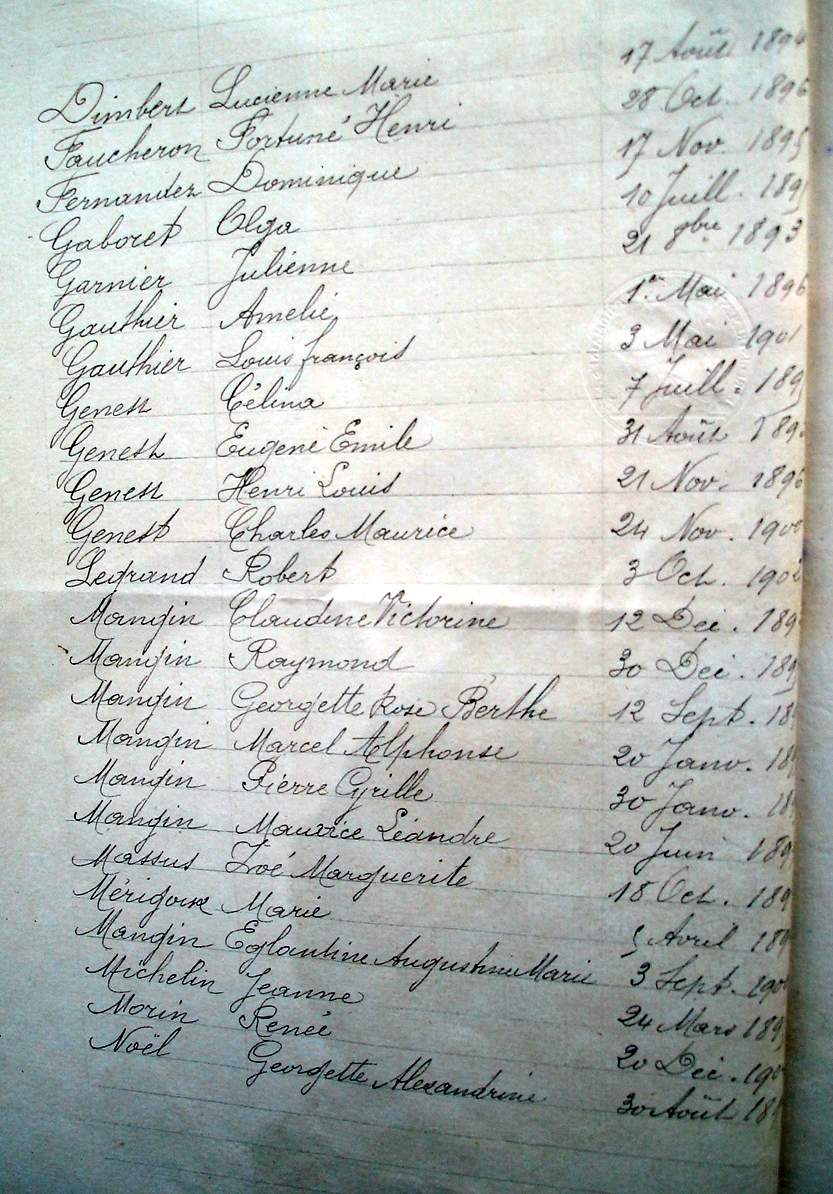 Dimbert Lucienne Marie 17 Août 1894
Faucheron Fortuné Henri 28 Oct. 1896
Fernandez Dominique 17 Nov. 1895
Gaboret Olga 10 Juill. 189
Garnier Julienne 21 8bre 1893
Gauthier Amelie 1er Mai 1896
Gauthier Louis françois 3 Mai 1901
Genest Célina 7 Juill. 189
Genest Eugene Emile 31 Août 189
Genest Henri Louis 21 Nov. 1896
Genest Charles Maurice 24 Nov. 1900
Legrand Robert 3 Oct. 1902
Mangin Claudine Victorine 12 Dec. 189
Mangin Raymond 30 Dec. 189
Mangin Georgette Rose Berthe 12 Sept. 18
Mangin Marcel Alphonse 20 Janv. 18
Mangin Pierre Cyrille 30 Janv. 18
Mangin Maurice Léandre 20 Juin 189
Massus Zoé Marguerite 18 Oct. 189
Mérigoux Marie 5 Avril 189
Mangin Eglantine Augustine Marie 3 Sept. 190
Michelin Jeanne 24 Mars 189
Morin Renée 20 Dec. 190
Noël Georgette Alexandrine 30 Août 18